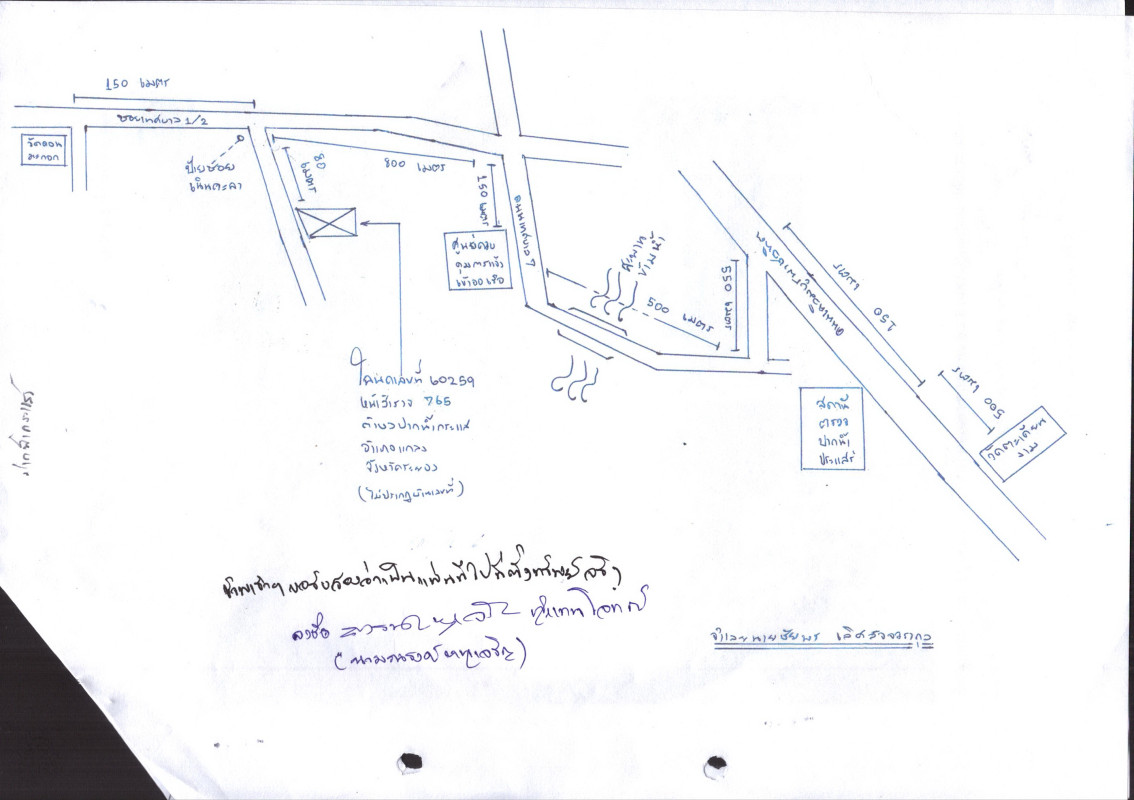 150 เมตร
ซอยเทศบาล 1/2
วัดดอน
มะกอก
ป้ายซอย
เนินตะลา
80
เมตร
800 เมตร
150 เมตร
ถนนเทศบาล 7
เข้าออกเรือ
สะพาน
ข้ามน้ำ
500 เมตร
550 เมตร
150 เมตร
500 เมตร
วัดตะเคียน
งาม
สถานี
ตำรวจ
ปากน้ำ
ประแสร์
โฉนดเลขที่ 60259
หน้าสำรวจ 765
ตำบลปากน้ำกระแส
อำเภอแกลง
จังหวัดระยอง
(ไม่ปรากฏบ้านเลขที่)
ปากน้ำกระแส
ข้าพเจ้าฯ ขอรับรองว่าเป็นแผนที่ไปที่ตั้งทรัพย์จริง
ลงชื่อ ผู้แทนโจทก์
จำเลยนายชัยพร